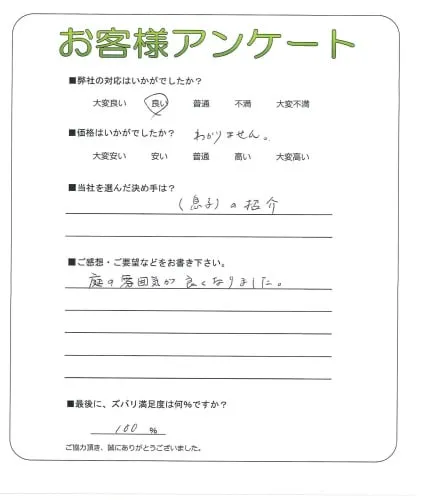 お客様アンケート
■弊社の対応はいかがでしたか？
大変良い 良い 普通 不満 大変不満
■価格はいかがでしたか？ わかりません。
大変安い 安い 普通 高い 大変高い
■当社を選んだ決め手は？
（息子）の紹介
■ご感想・ご要望などをお書き下さい。
庭の雰囲気が良くなりました。
■最後に、ズバリ満足度は何％ですか？
100 %
ご協力頂き、誠にありがとうございました。